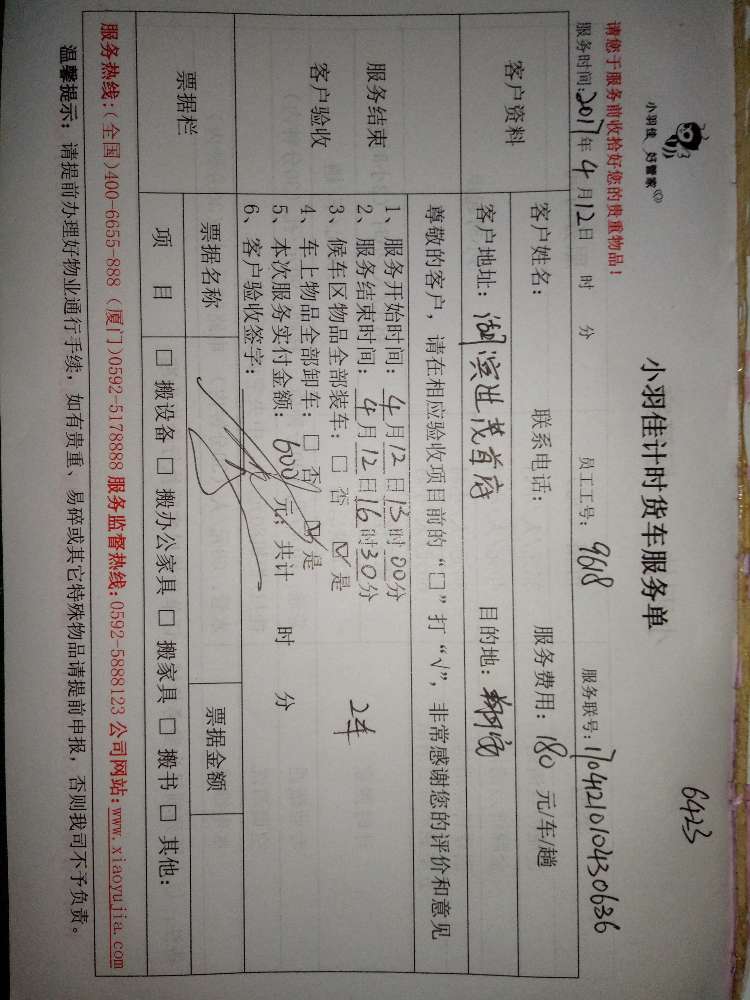 6423
小羽佳 好管家
小羽佳计时货车服务单
请您于服务前收拾好您的贵重物品！
服务时间：2017年4月12日 时 分 员工工号：968 服务联号：17041210430636
客户资料
客户姓名： 联系电话： 服务费用：180元/车/趟
客户地址：湖滨进茂首府 目的地：
服务结束
客户验收
尊敬的客户，请在相应验收项目前的“□”打“√”，非常感谢您的评价和意见
1、服务开始时间：4月12日13时00分
2、服务结束时间：4月12日16时30分
3、候车区物品全部装车：□ 否 ☑ 是 2车
4、车上物品全部卸车：□ 否 ☑ 是
5、本次服务实付金额：600元；共计 时 分
6、客户验收签字：
票据栏
票据名称 票据金额
项 目 □ 搬设备 □ 搬办公家具 □ 搬家具 □ 搬书 □ 其他：
服务热线：(全国)400-6655-888 (厦门)0592-5178888 服务监督热线：0592-5888123 公司网站：www.xiaoyujia.com
温馨提示：请提前办理好物业通行手续，如有贵重、易碎或其它特殊物品请提前申报，否则我司不予负责。